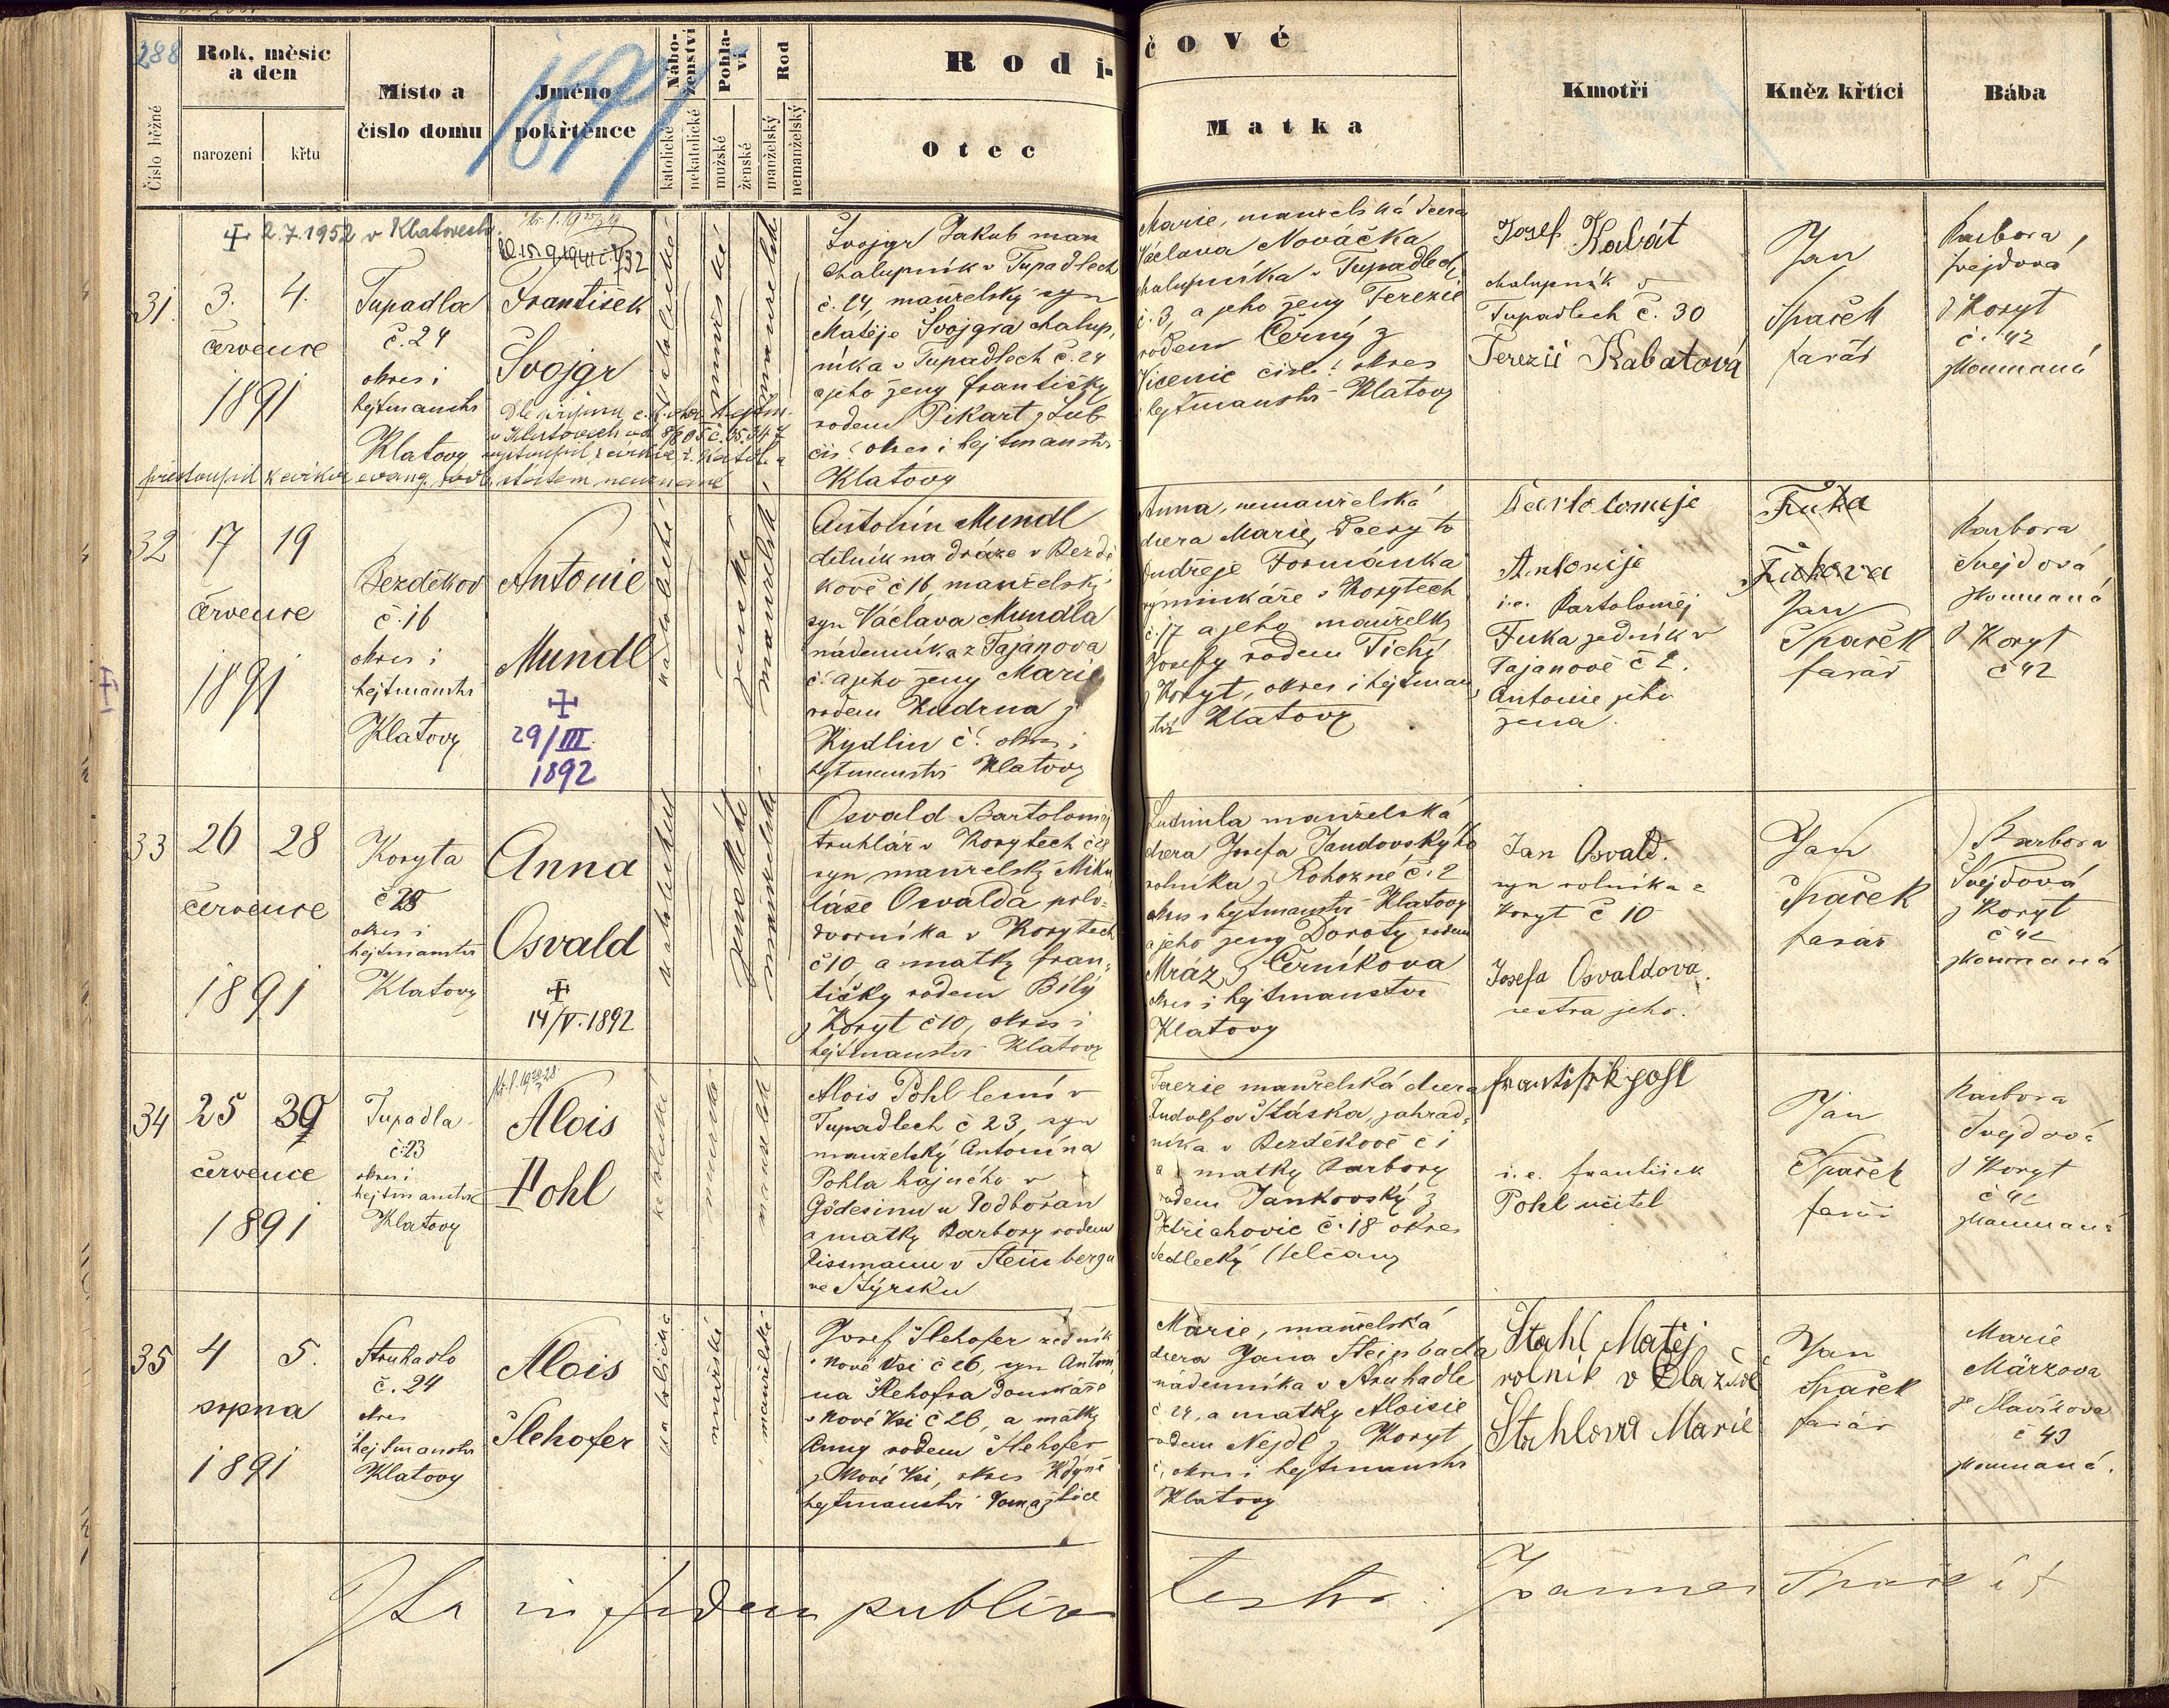 288
Rok, měsíc
a den
narození
křtu
Číslo běžné
Místo a
číslo domu
Jméno
pokřtěnce
1891
Nábo-
ženství
katolické
nekatolické
Pohla-
ví
mužské
ženské
Rod
manželský
nemanželský
Rodi-
Otec
čové
Matka
Kmotři
Kněz křtící
Bába
31.
2.7.1952 v Klatovech.
3. 4.
července
1891
Tupadla
č. 24
okres i
hejtmanství
Klatovy
František
Svojgr
v Klatovech
přistoupil k církvi evang.
katolické
mužské
manželské
Svojgr Jakub
chalupník v Tupadlech
č. 24, manželský syn
Matěje Svojgra chalup,
níka v Tupadlech č. 24
a jeho ženy Františky
rodem Pikart z Lub
čís. okres i hejtmanství
Klatovy
Marie, manželská dcera
Václava Nováčka
chalupníka v Tupadlech
č. 3, a jeho ženy Terezie
rodem Černý z
Vícenic čísl. okres
i hejtmanství Klatovy
Josef Kabát
chalupník v
Tupadlech č. 30
Terezií Kabatová
Jan
Spaček
farář
Barbora
Švejdová
z Koryt
č. 42
zkoumaná
32
17 19
července
1891
Bezděkov
č. 16
okres i
hejtmanství
Klatovy
Antonie
Mundl
29/III
1892
katolické
ženské
manželské
Antonín Mundl
dělník na dráze v Bezdě
kově č 16, manželský
syn Václava Mundla
nádenníka z Tajanova
č. a jeho ženy Marie
rodem Kudrna z
Kydlin č. okres i
hejtmanství Klatovy
Anna, nemanželská
dcera Marie, dcery to
Ondřeje Formánka
výminkáře v Korytech
č. 17 a jeho manželky
Josefy rodem Tichý
z Koryt, okres i hejtman
ství Klatovy
Bartolomeje
Antonije
i.e. Bartoloměj
Fuka sedník v
Tajanově č 2.
Antonie jeho
žena.
Fuka
Fukova
Jan
Spaček
farář
Barbora
Švejdová
zkoumaná
z Koryt
č 42
33
26 28
července
1891
Koryta
č 28
okres i
hejtmanství
Klatovy
Anna
Osvald
14/V. 1892
katolické
ženského
manželské
Osvald Bartoloměj
truhlář v Korytech č 28
syn manželský Miku
láše Osvalda polo-
dvorníka v Korytech
č 10 a matky Fran-
tišky rodem Bílý
z Koryt č 10, okres i
hejtmanství Klatovy
Ludmila manželská
dcera Josefa Jandovského
rolníka z Rohozné č. 2
okres i hejtmanství Klatovy
a jeho ženy Doroty rodem
Mráz z Černíkova
okres i hejtmanství
Klatovy
Jan Osvald.
syn rolníka z
Koryt č 10
Josefa Osvaldova.
sestra jeho.
Jan
Spaček
farář
Barbora
Švejdová
z Koryt
č 42
zkoumaná
34
25 30
července
1891
Tupadla
č. 23
okres i
hejtmanství
Klatovy
Alois
Pohl
katolické
mužské
manželské
Alois Pohl lesní v
Tupadlech č 23, syn
manželský Antonína
Pohla hajného v
Gödesinu u Podbořan
a matky Barbory rodem
Lissmann v Steinbergu
ve Štýrsku
Terezie manželská dcera
Rudolfa Stáska, zahrad-
níka v Bezděkově č 1
a matky Barbory
rodem Jankovský z
Jetřichovic č. 18 okres
Sedlecký Selčany
František Pohl
i. e. František
Pohl učitel
Jan
Spaček
farář
Barbora
Švejdová
z Koryt
č 42
zkoumaná
35
4 5.
srpna
1891
Struhadlo
č. 24
okres
i hejtmanství
Klatovy
Alois
Šlehofer
katolické
mužské
manželské
Josef Šlehofer zedník
v Nové Vsi č 26, syn Antoní
na Šlehofra domkáře
v Nové Vsi č 26, a matky
Anny rodem Šlehofer
z Nové Vsi, okres Kdyně
hejtmanství Domažlice
Marie, manželská
dcera Jana Steinbacha
nádenníka v Struhadle
č. 24, a matky Aloisie
rodem Nejdl z Koryt
č. okres i hejtmanství
Klatovy
Stahl Matěj
rolník v
Stahlova Marie
Jan
Spaček
farář
Marie
Märzova
ze Slavíkova
č 43
zkoumaná.
Ita in fidem publicam testor. Joannes Spaček